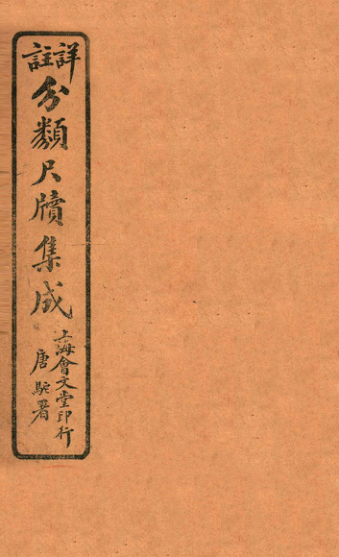 詳註
分類尺牘集成
上海會文堂印行
唐駝署